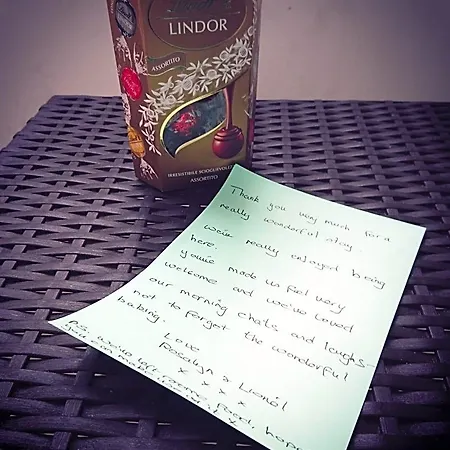 LINDOR
ASSORTITO
IRRESISTIBILE SCIOGLIEVOLEZZA
ASSORTITO
Thank you very much for a
really wonderful stay.
We've really enjoyed being
here.
You've made us feel very
welcome and we've loved
our morning chats and laughs -
not to forget the wonderful
baking.
Love
Rosalyn & Lionel
x x x x
P.S. We've left some food, hope